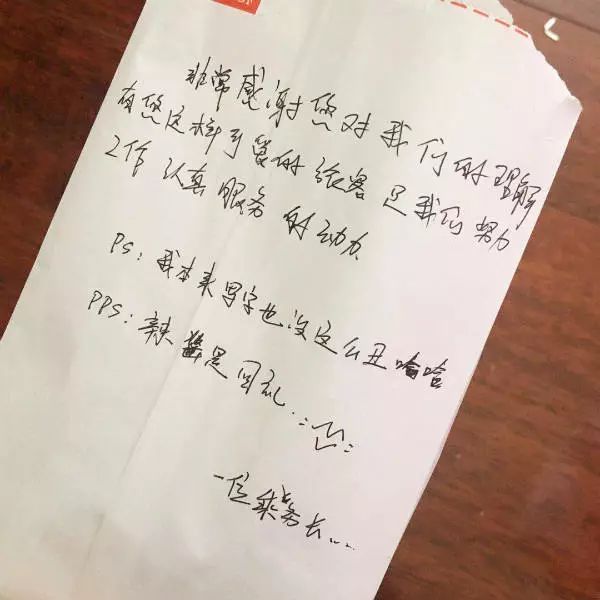 非常感谢您对我们的理解
有您这样可爱的旅客是我们努力
工作 认真 服务 的动力.
PS: 我本来写字也没这么丑哈哈
PPS: 辣酱是回礼..
一位乘务长....